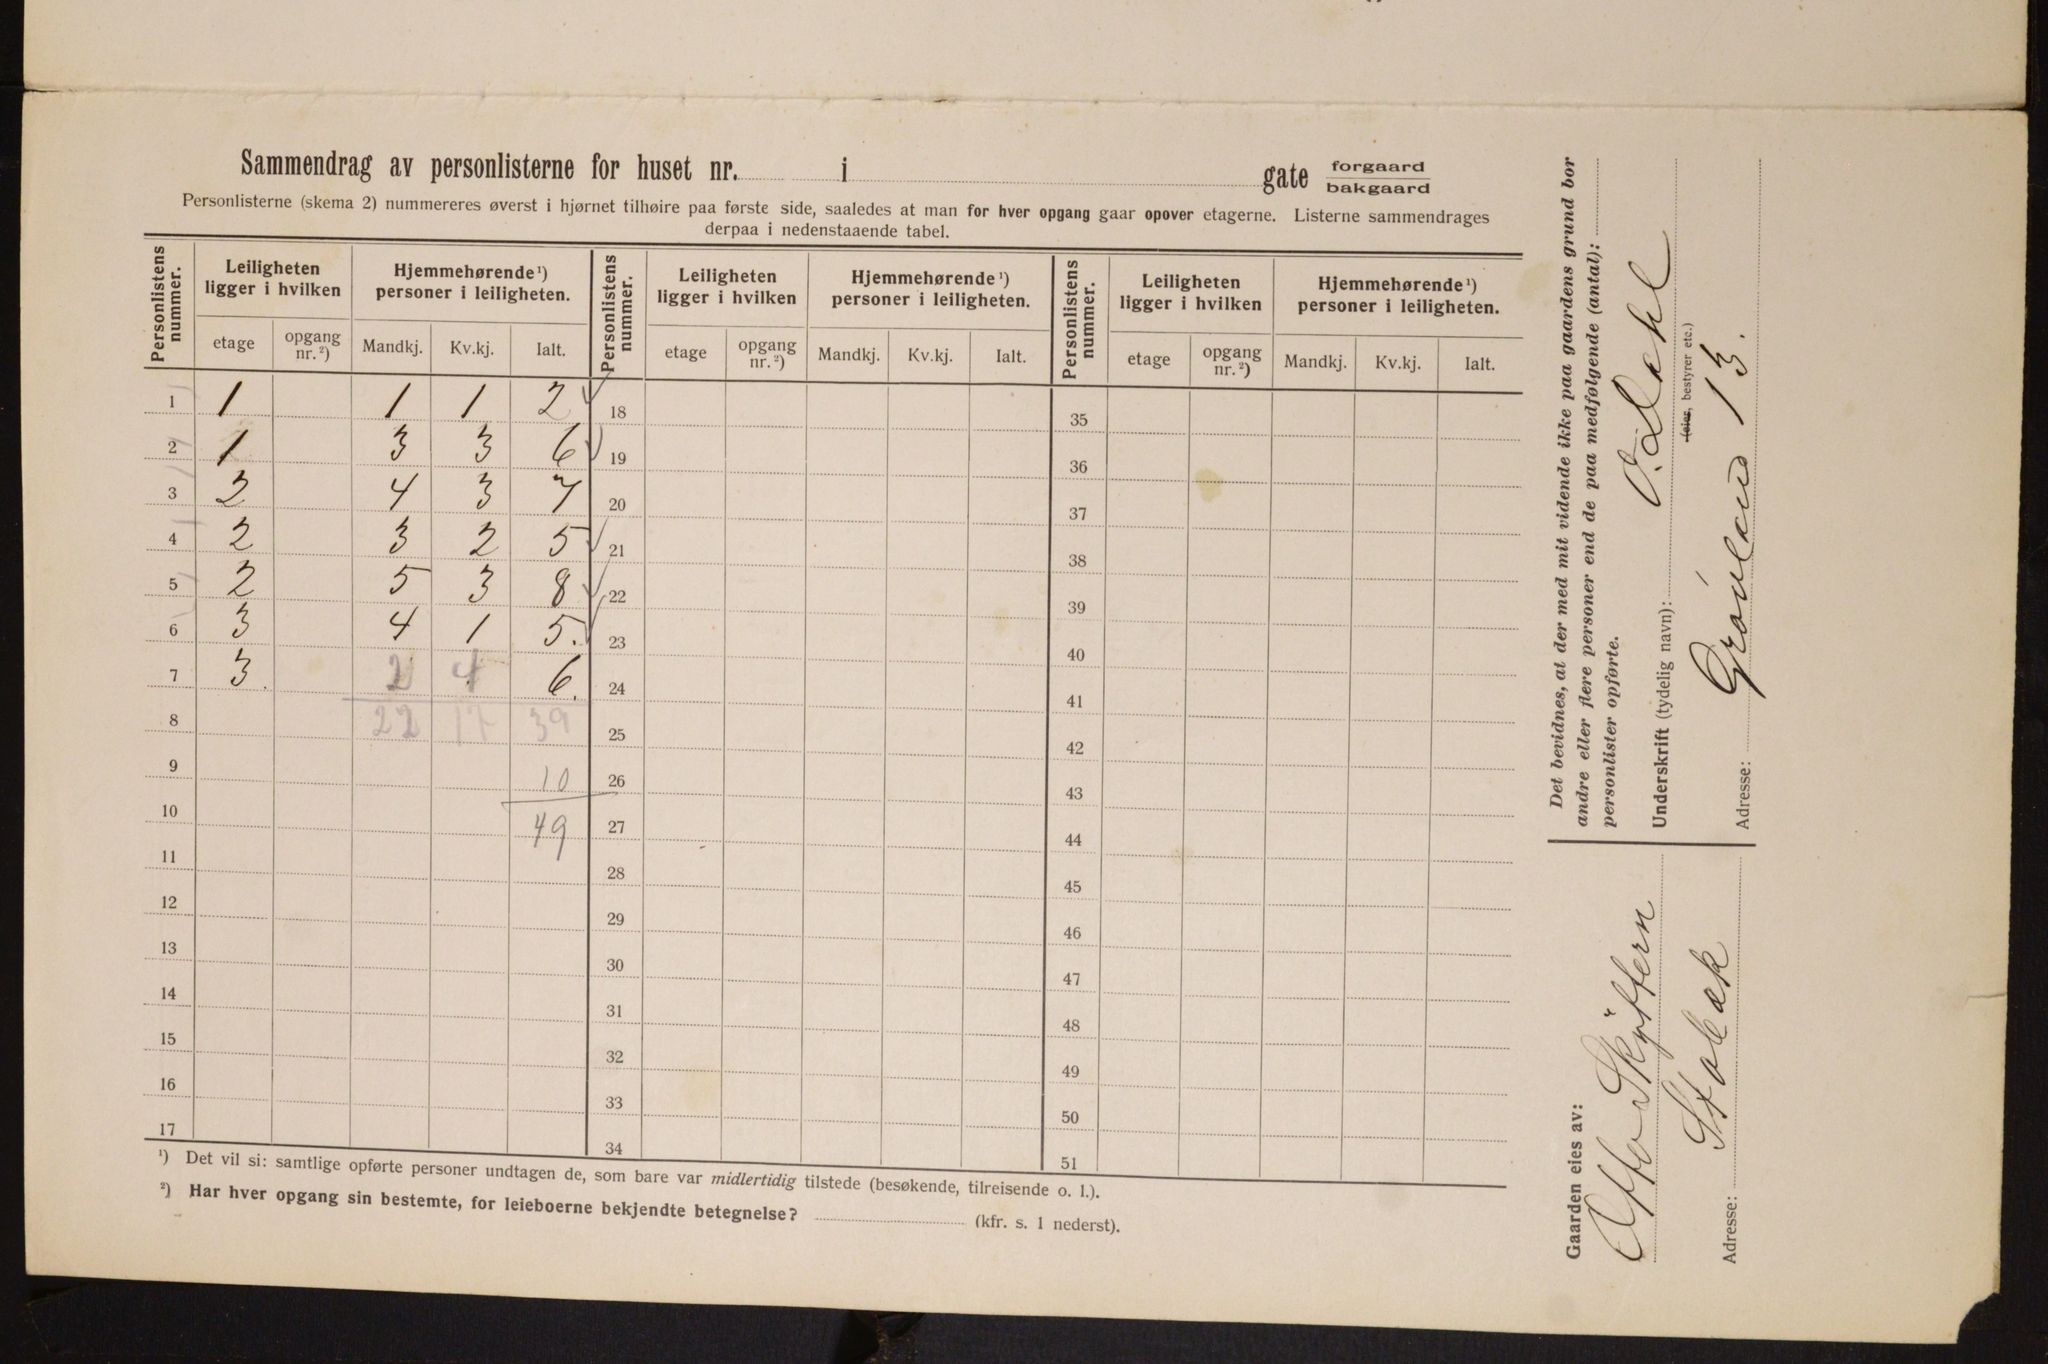 Sammendrag av personlisterne for huset nr. i gate forgaard
bakgaard
Personlisterne (skema 2) nummereres øverst i hjørnet tilhøire paa første side, saaledes at man for hver opgang gaar opover etagerne. Listerne sammendrages
derpaa i nedenstaaende tabel.
Personlistens nummer. Leiligheten ligger i hvilken Hjemmehørende ¹) personer i leiligheten. Personlistens nummer. Leiligheten ligger i hvilken Hjemmehørende ¹) personer i leiligheten. Personlistens nummer. Leiligheten ligger i hvilken Hjemmehørende ¹) personer i leiligheten.
etage opgang nr. ²) Mandkj. Kv.kj. Ialt. etage opgang nr. ²) Mandkj. Kv.kj. Ialt. etage opgang nr. ²) Mandkj. Kv.kj. Ialt.
1 1 1 1 2 18 35
2 1 3 3 6 19 36
3 2 4 3 7 20 37
4 2 3 2 5 21 38
5 2 5 3 8 22 39
6 3 4 1 5. 23 40
7 3. 2 4 6. 24 41
8 22 17 39 25 42
9 10 26 43
10 49 27 44
11 28 45
12 29 46
13 30 47
14 31 48
15 32 49
16 33 50
17 34 51
¹) Det vil si: samtlige opførte personer undtagen de, som bare var midlertidig tilstede (besøkende, tilreisende o. l.).
²) Har hver opgang sin bestemte, for leieboerne bekjendte betegnelse? (kfr. s. 1 nederst).
Det bevidnes, at der med mit vidende ikke paa gaardens grund bor
andre eller flere personer end de paa medfølgende (antal):
personlister opførte.
Underskrift (tydelig navn):
(eier, bestyrer etc.)
Adresse: Grönland 13.
Gaarden eies av:
Adresse: Stabæk